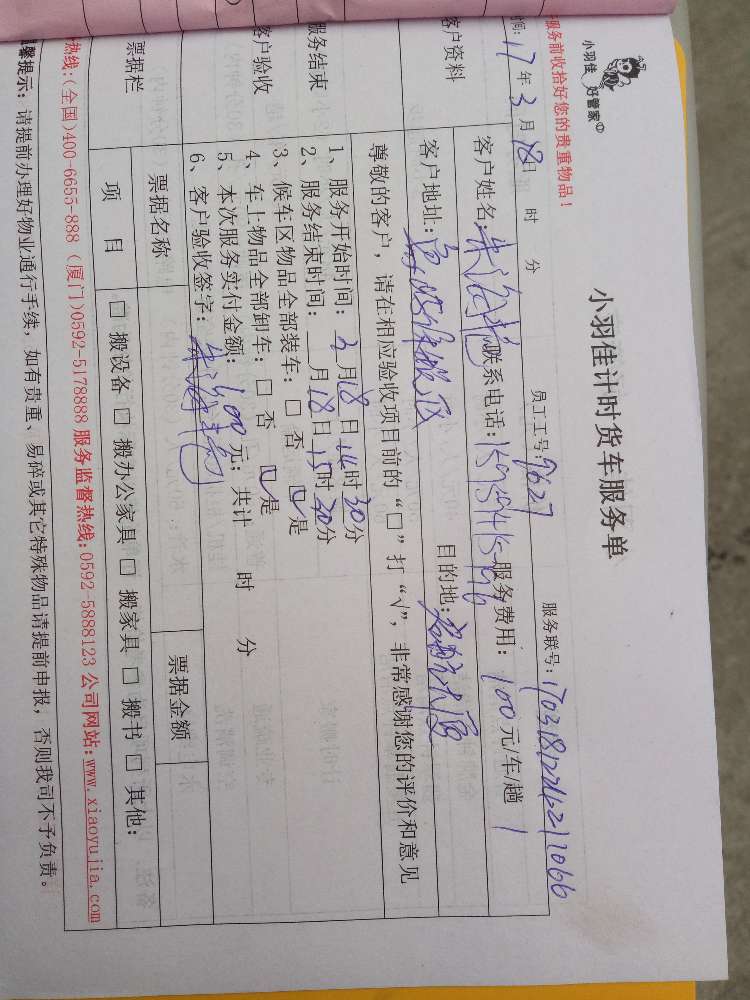 小羽佳 好管家
小羽佳计时货车服务单
服务前收拾好您的贵重物品！
时间: 17 年 3 月 18 日 时 分 员工工号: 9627 服务联号: 1703181221621066
客户资料
客户姓名: 联系电话: 服务费用: 100 元/车/趟
客户地址: 目的地:
尊敬的客户，请在相应验收项目前的“□”打“√”，非常感谢您的评价和意见
服务结束
客户验收
1、服务开始时间: 3 月 18 日 14 时 30 分
2、服务结束时间: 月 18 日 15 时 20 分
3、候车区物品全部装车: □ 否 □ 是
4、车上物品全部卸车: □ 否 □ 是
5、本次服务实付金额: 100 元; 共计 时 分
6、客户验收签字:
票据栏
票据名称 票据金额
项 目 □ 搬设备 □ 搬办公家具 □ 搬家具 □ 搬书 □ 其他:
热线:(全国)400-6655-888 (厦门)0592-5178888 服务监督热线:0592-5888123 公司网站:www.xiaoyujia.com
馨提示: 请提前办理好物业通行手续，如有贵重、易碎或其它特殊物品请提前申报，否则我司不予负责。